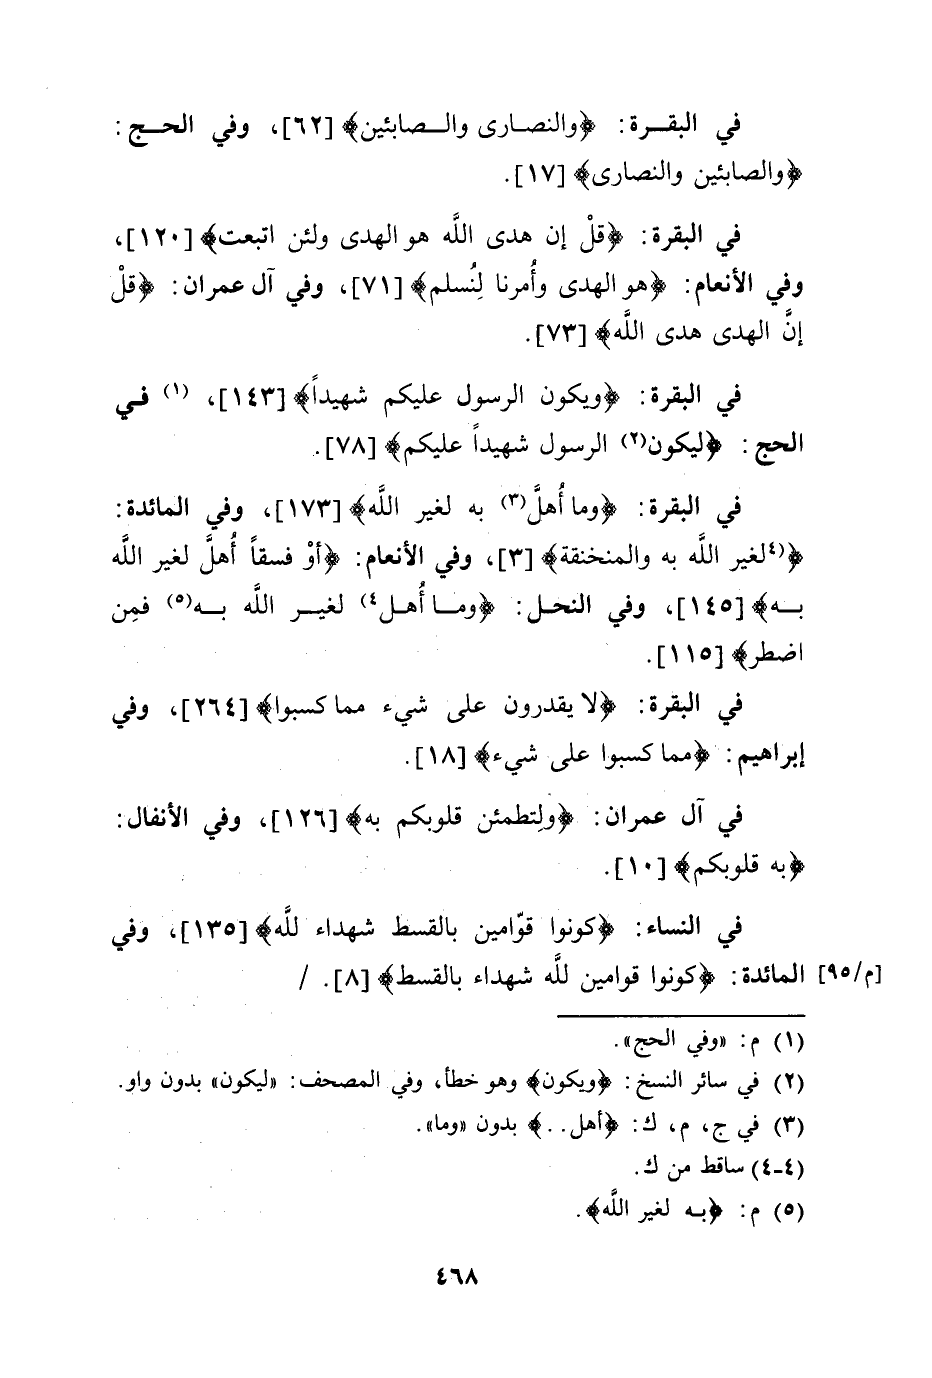 في البقـرة: ﴿والنصارى والـصابئين﴾ [٦٢]، وفي الحـج:
﴿والصابئين والنصارى﴾ [١٧].
في البقرة: ﴿قلْ إن هدى اللَّه هو الهدى ولئن اتبعت﴾ [١٢٠]،
وفي الأنعام: ﴿هو الهدى وأُمرنا لِنُسلم﴾ [٧١]، وفي آل عمران: ﴿قلْ
إنَّ الهدى هدى اللَّه﴾ [٧٣].
في البقرة: ﴿ويكون الرسول عليكم شهيداً﴾ [١٤٣]، (١) في
الحج: ﴿ليكون(٢) الرسول شهيداً عليكم﴾ [٧٨].
في البقرة: ﴿وما أُهلَّ(٣) به لغير اللَّه﴾ [١٧٣]، وفي المائدة:
﴿(٤لغير اللَّه به والمنخنقة﴾ [٣]، وفي الأنعام: ﴿أوْ فسقاً أُهلَّ لغير اللَّه
بـه﴾ [١٤٥]، وفي النحل: ﴿ومـا أُهـل٤) لغيـر اللَّه بـه(٥) فمِن
اضطر﴾ [١١٥].
في البقرة: ﴿لا يقدرون على شيء مما كسبوا﴾ [٢٦٤]، وفي
إبراهيم: ﴿مما كسبوا على شيء﴾ [١٨].
في آل عمران: ﴿ولِتطمئن قلوبكم به﴾ [١٢٦]، وفي الأنفال:
﴿به قلوبكم﴾ [١٠].
في النساء: ﴿كونوا قوّامين بالقسط شهداء للَّه﴾ [١٣٥]، وفي
[م/٩٥] المائدة: ﴿كونوا قوامين للَّه شهداء بالقسط﴾ [٨]. /
(١) م: «وفي الحج».
(٢) في سائر النسخ: ﴿ويكون﴾ وهو خطأ، وفي المصحف: «ليكون» بدون واو.
(٣) في ج، م، ك: ﴿أهل..﴾ بدون «وما».
(٤-٤) ساقط من ك.
(٥) م: ﴿بـه لغير اللَّه﴾.
٤٦٨